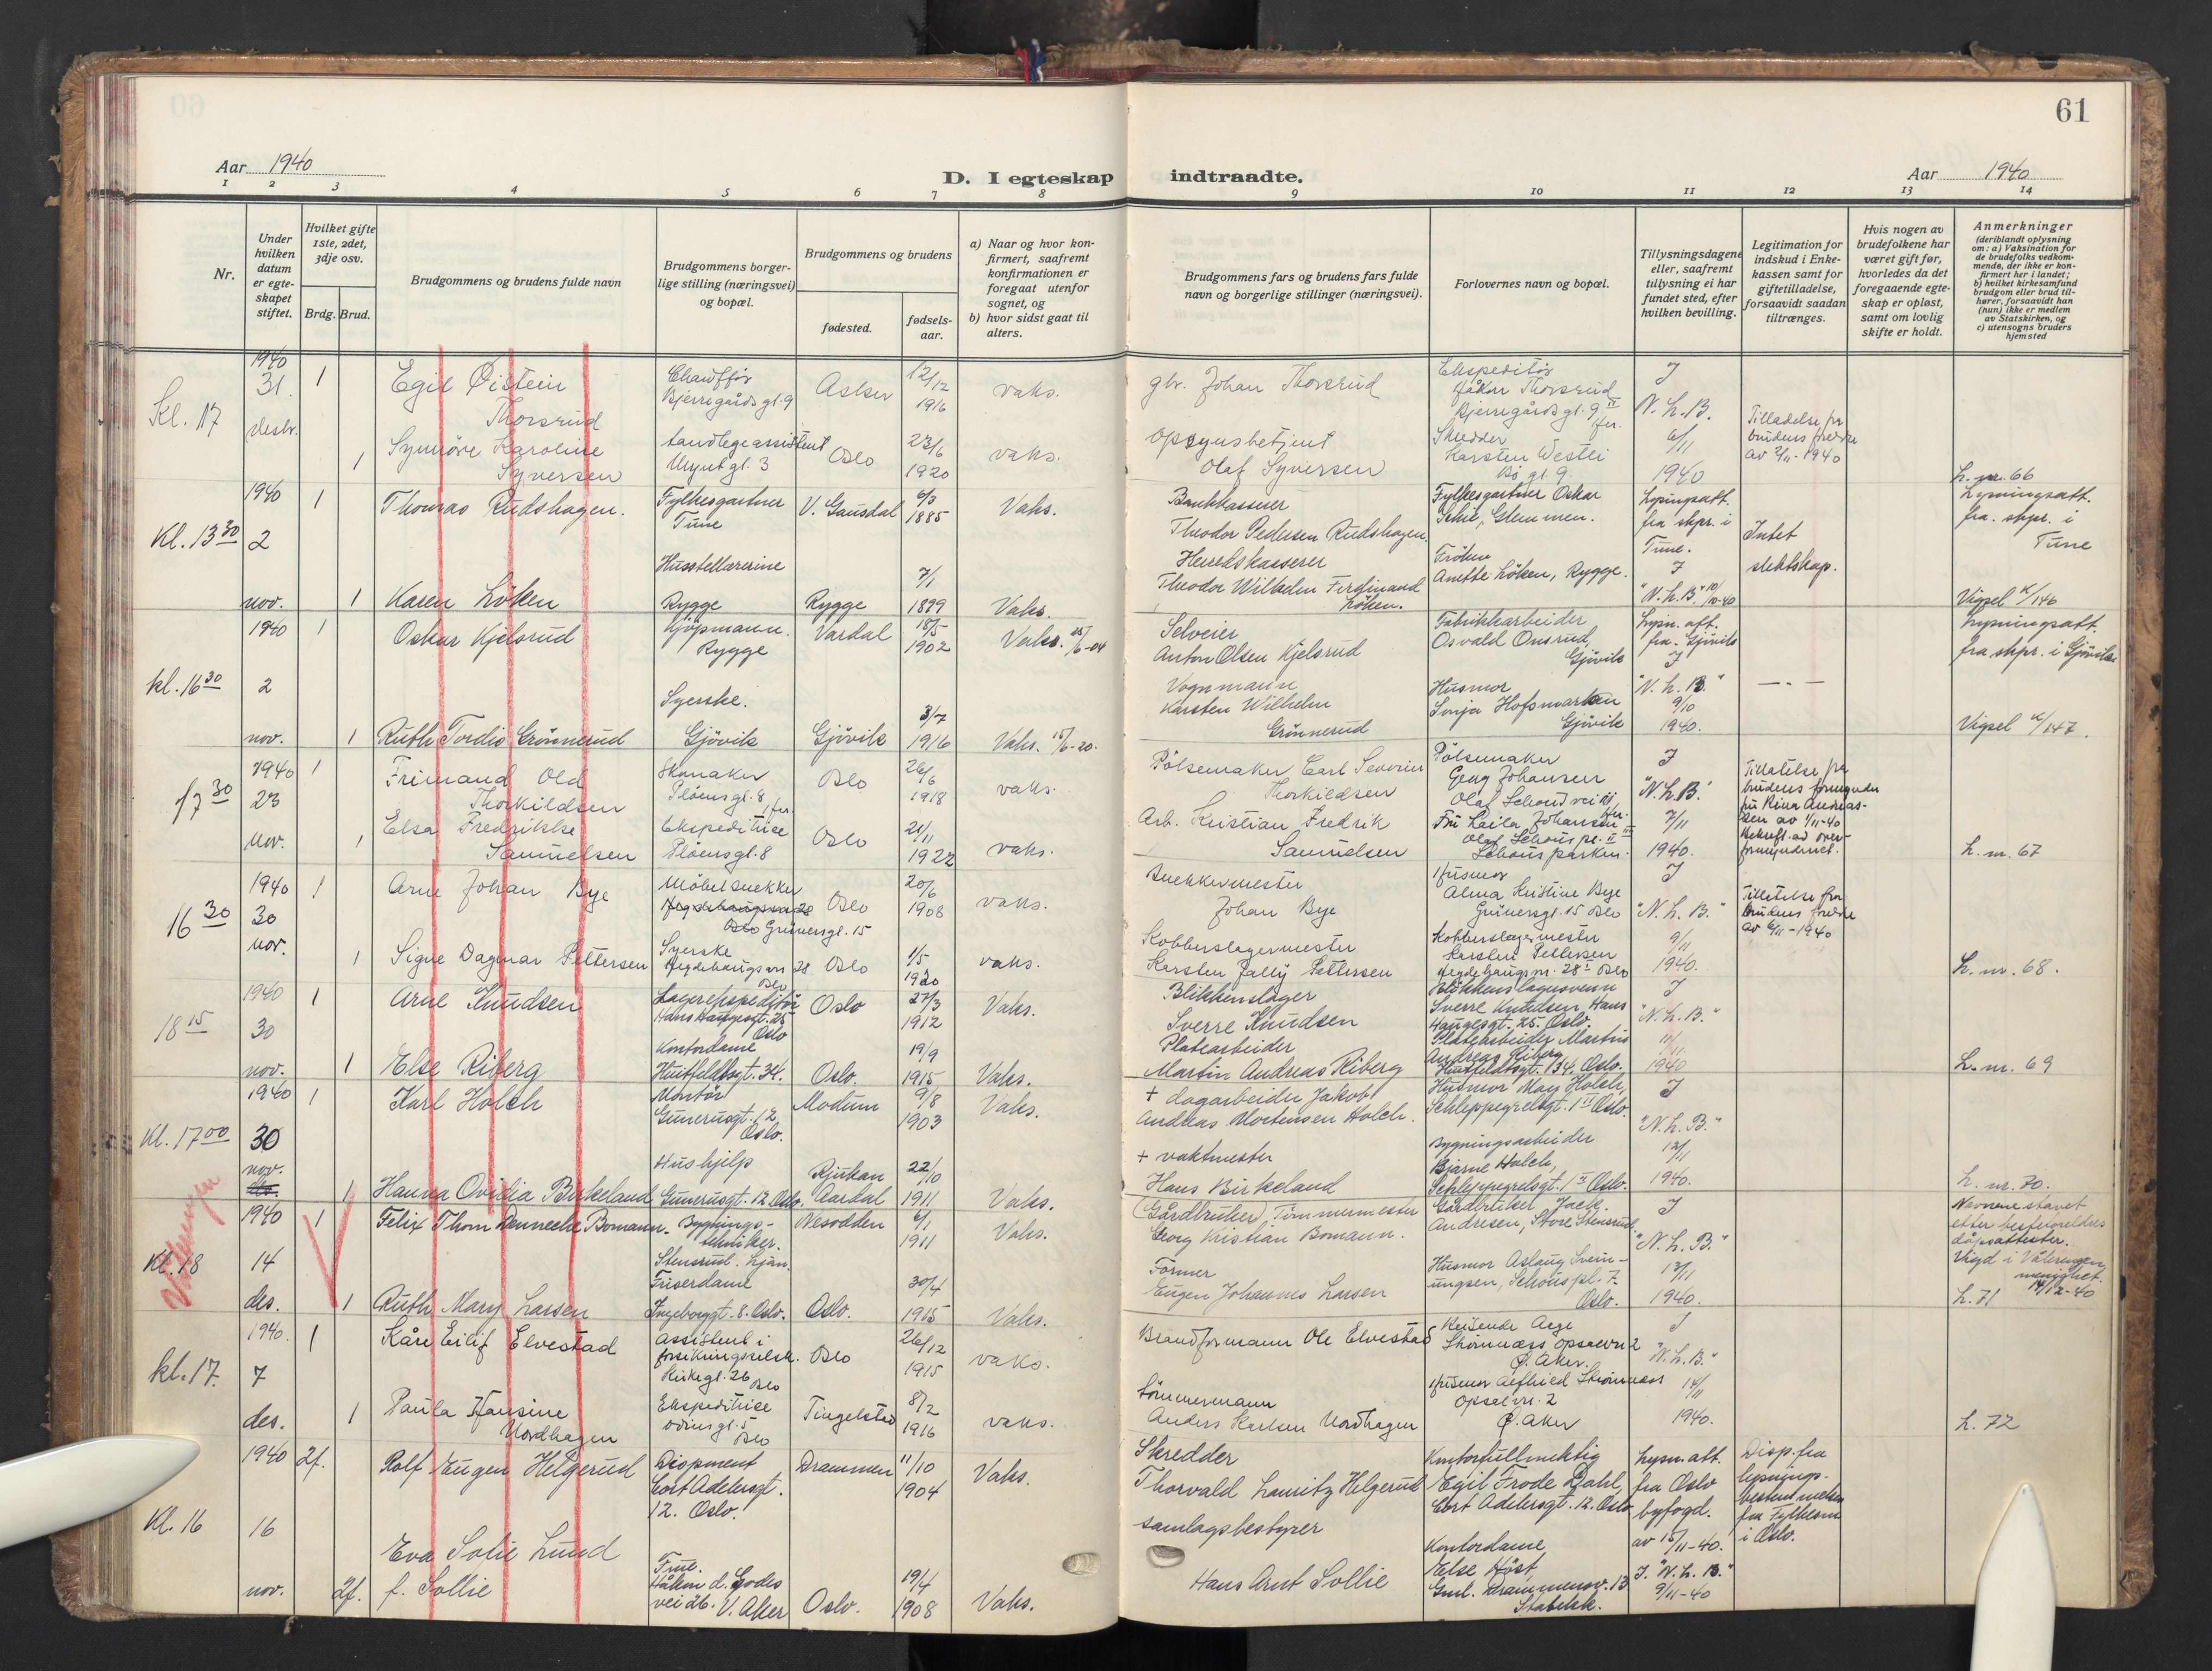 61
Aar 1940
D. I egteskap indtraadte.
Aar 1940
1 2 3 4 5 6 7 8 9 10 11 12 13 14
Nr.
Under hvilken datum er egteskapet stiftet.
Hvilket gifte 1ste, 2det, 3dje osv.
Brdg. Brud.
Brudgommens og brudens fulde navn
Brudgommens borgerlige stilling (næringsvei) og bopæl.
Brudgommens og brudens
fødested.
fødselsaar.
a) Naar og hvor konfirmert, saafremt konfirmationen er foregaat utenfor sognet, og
b) hvor sidst gaat til alters.
Brudgommens fars og brudens fars fulde navn og borgerlige stillinger (næringsvei).
Forlovernes navn og bopæl.
Tillysningsdagene eller, saafremt tillysning ei har fundet sted, efter hvilken bevilling.
Legitimation for indskud i Enkekassen samt for giftetilladelse, forsaavidt saadan tiltrænges.
Hvis nogen av brudefolkene har været gift før, hvorledes da det foregaaende egteskap er opløst, samt om lovlig skifte er holdt.
Anmerkninger
(deriblandt oplysning om: a) Vaksination for de brudefolks vedkommende, der ikke er konfirmert her i landet; b) hvilket kirkesamfund brudgom eller brud tilhører, forsaavidt han (hun) ikke er medlem av Statskirken, og c) utensogns bruders hjemsted
Kl. 17
1940 31. desbr.
1 Egil Øistein Thorsrud
Chauffør Bjerregårdsgt. 9
Asker
12/12 1916
vaks.
gbr. Johan Thorsrud
Ekspeditør Håkon Thorsrud Bjerregårdsgt. 9
J
"N. L. B."
6/11 1940
1 Synnöve Karoline Syversen
Tandlegeassistent
gt. 3
Oslo
23/6 1920
vaks.
Opsynsbetjent Olaf Syversen
Skredder Karsten Westli Bö gt. 9.
Tilladelse fra brudens foreldre av 2/11-1940
L. nr. 66
Kl. 13 30
1940 2 nov.
1 Thomas Rudshagen.
Fylkesgartner Tune
V. Gausdal
6/3 1885
Vaks.
Bankkasserer Theodor Pedersen Rudshagen.
Fylkesgartner Oskar Glemmen.
Lysningsatt. fra skpr. i Tune.
J
"N. L. B." 10/10-40
Intet slektskap.
Lysningsatt. fra. skpr. i Tune
1 Karen Löken
Husstellærerine Rygge
Rygge
7/1 1899
Vaks.
Herredskasserer Theodor Wilhelm Ferdinand Löken.
Fröken Anette Löken, Rygge.
Vigsel /146
kl. 16 30
1940 2 nov.
1 Oskar Kjelsrud
Kjöpmann. Rygge
Vardal
18/5 1902
Vaks. 25/6-04
Selveier Anton Olsen Kjelsrud
Fabrikkarbeider Osvald Onsrud, Gjövik
Lysn. att. fra. Gjövik
J
"N. L. B."
9/10 1940.
Lysningsatt. fra skpr. i Gjövik
1 Ruth Tordis Grönnerud
Syerske. Gjövik
Gjövik
3/7 1916
Vaks. 15/6-20.
Vognmann Karsten Wilhelm Grönnerud
Husmor Sonja Hofsmarken Gjövik
Vigsel /147.
17 30
1940 23 nov.
1 Frimand Old Thorkildsen
Skomaker Plöensgt. 8
Oslo
26/6 1918
vaks.
Pölsemaker Carl Severin Thorkildsen
Pölsemaker Georg Johansen
J
"N. L. B."
7/11 1940.
1 Elsa Fredrikke Samuelsen
Ekspeditrise Plöensgt. 8
Oslo
21/11 1922
vaks.
Arb. Kristian Fredrik Samuelsen
Fru Laila Johansen
Tillatelse fra brudens formynder fru Rina Andreassen av 1/11-40
L. nr. 67
16 30
1940 30 nov.
1 Arne Johan Bye
Möbelsnekker Grünersgt. 15
Oslo
20/6 1908
vaks.
Snekkermester Johan Bye
Husmor Alma Kristine Bye Grünersgt. 15 Oslo
J
"N. L. B."
9/11 1940.
1 Signe Dagmar Pettersen
Syerske Hegdehaugsvn 28 Oslo
Oslo
1/5 1920
vaks.
Kobberslagermester Karsten Pettersen
Kobberslagermester Karsten Pettersen Hegdehaugsvn. 28 Oslo
Tilletelse fra brudens foreldre av 6/11-1940
L. nr. 68.
18 15
1940 30 nov.
1 Arne Knudsen
Lagerekspeditör Hans Haugesgt. 25 Oslo
Oslo
27/3 1912
Vaks.
Blikkenslager Sverre Knudsen
Blikkenslagersvenn Sverre Knudsen, Hans Haugesgt. 25. Oslo.
J
"N. L. B."
11/11 1940
1 Else Riberg
Kontordame Huitfeldtsgt. 34.
Oslo.
19/9 1915
Vaks.
Platearbeider Martin Andreas Riberg
Platearbeider Martin Andreas Riberg Huitfeldtsgt. 34. Oslo.
L. nr. 69
Kl. 17 00
1940 30 nov.
1 Karl Holch
Montör Gunerusgt. 12 Oslo.
Modum
9/8 1903
Vaks.
+ dagarbeider Jakob Andreas Mortensen Holch.
Husmor May Holch, Schleppegrelsgt. 1 Oslo.
J
"N. L. B."
12/11 1940.
1 Hanna Ovidia Birkeland
Hushjelp Gunerusgt. 12 Oslo.
Rjukan
22/10 1911
Vaks.
+ vaktmester Hans Birkeland
Bygningsarbeider Bjarne Holch, Schleppegrelsgt. 1 Oslo.
L. nr. 70.
Vålerengen
Kl. 18
1940 14 des.
1 Felix Thom Denneche Bomann.
Bygnings-tekniker. Stensrud. Ljan.
Nesodden
6/1 1911
Vaks.
(Gårdbruker) Tömmermester Georg Kristian Bomann.
Gårdbruker Jack. Andresen, Store Stensrud.
J
"N. L. B."
13/11 1940.
Navnene stavet etter besteforeldres dåpsattester.
Vigd i Vålerengen menighet. 14/12-40
1 Ruth Mary Larsen
Friserdame Ingeborggt. 8. Oslo.
Oslo.
30/4 1915
Vaks.
Former Eugen Johannes Larsen
Husmor Aslaug Sveinungsen, Schouspl. 7. Oslo.
L. 71
kl. 17.
1940. 7 des.
1 Kåre Eilif Elvestad
Assistent i forsikringsselsk. Kirkegt. 26 Oslo
Oslo
26/12 1915
vaks.
Brandformann Ole Elvestad
Reisende Aage Strömnæss Opsalvn 2 Ö. Aker.
J
"N. L. B."
14/11 1940.
1 Paula Hansine Nordhagen
Ekspeditrise Odinsgt. 5 Oslo
Tingelstad
8/2 1916
vaks.
Tömmermann Anders Karlsen Nordhagen
Husmor Alfhild Strömnæss Opsalvn. 2 Ö. Aker
L. 72
Kl. 16
1940 16 nov.
2f. Rolf Eugen Helgerud
Disponent Cort Adelersgt. 12. Oslo.
Drammen
11/10 1904
Vaks.
Skredder Thorvald Lauritz Helgerud
Kontorfullmektig Egil Frode Dahl, Cort Adelersgt. 12. Oslo
Lysn. att. fra Oslo byfogd. av 15/11-40.
J. "N. L. B." 9/11-40
Disp. fra lysningsbestemmelsen fra Fylkesm. i Oslo.
2f. Eva Sofie Lund f. Sollie
Frue. Håkon d. Godes vei 26. V. Aker
Oslo.
19/4 1908
Vaks.
Samlagsbestyrer Hans Arnt Sollie
Kontordame Else Höst, Gml. Drammensv. 13 Stabekk.